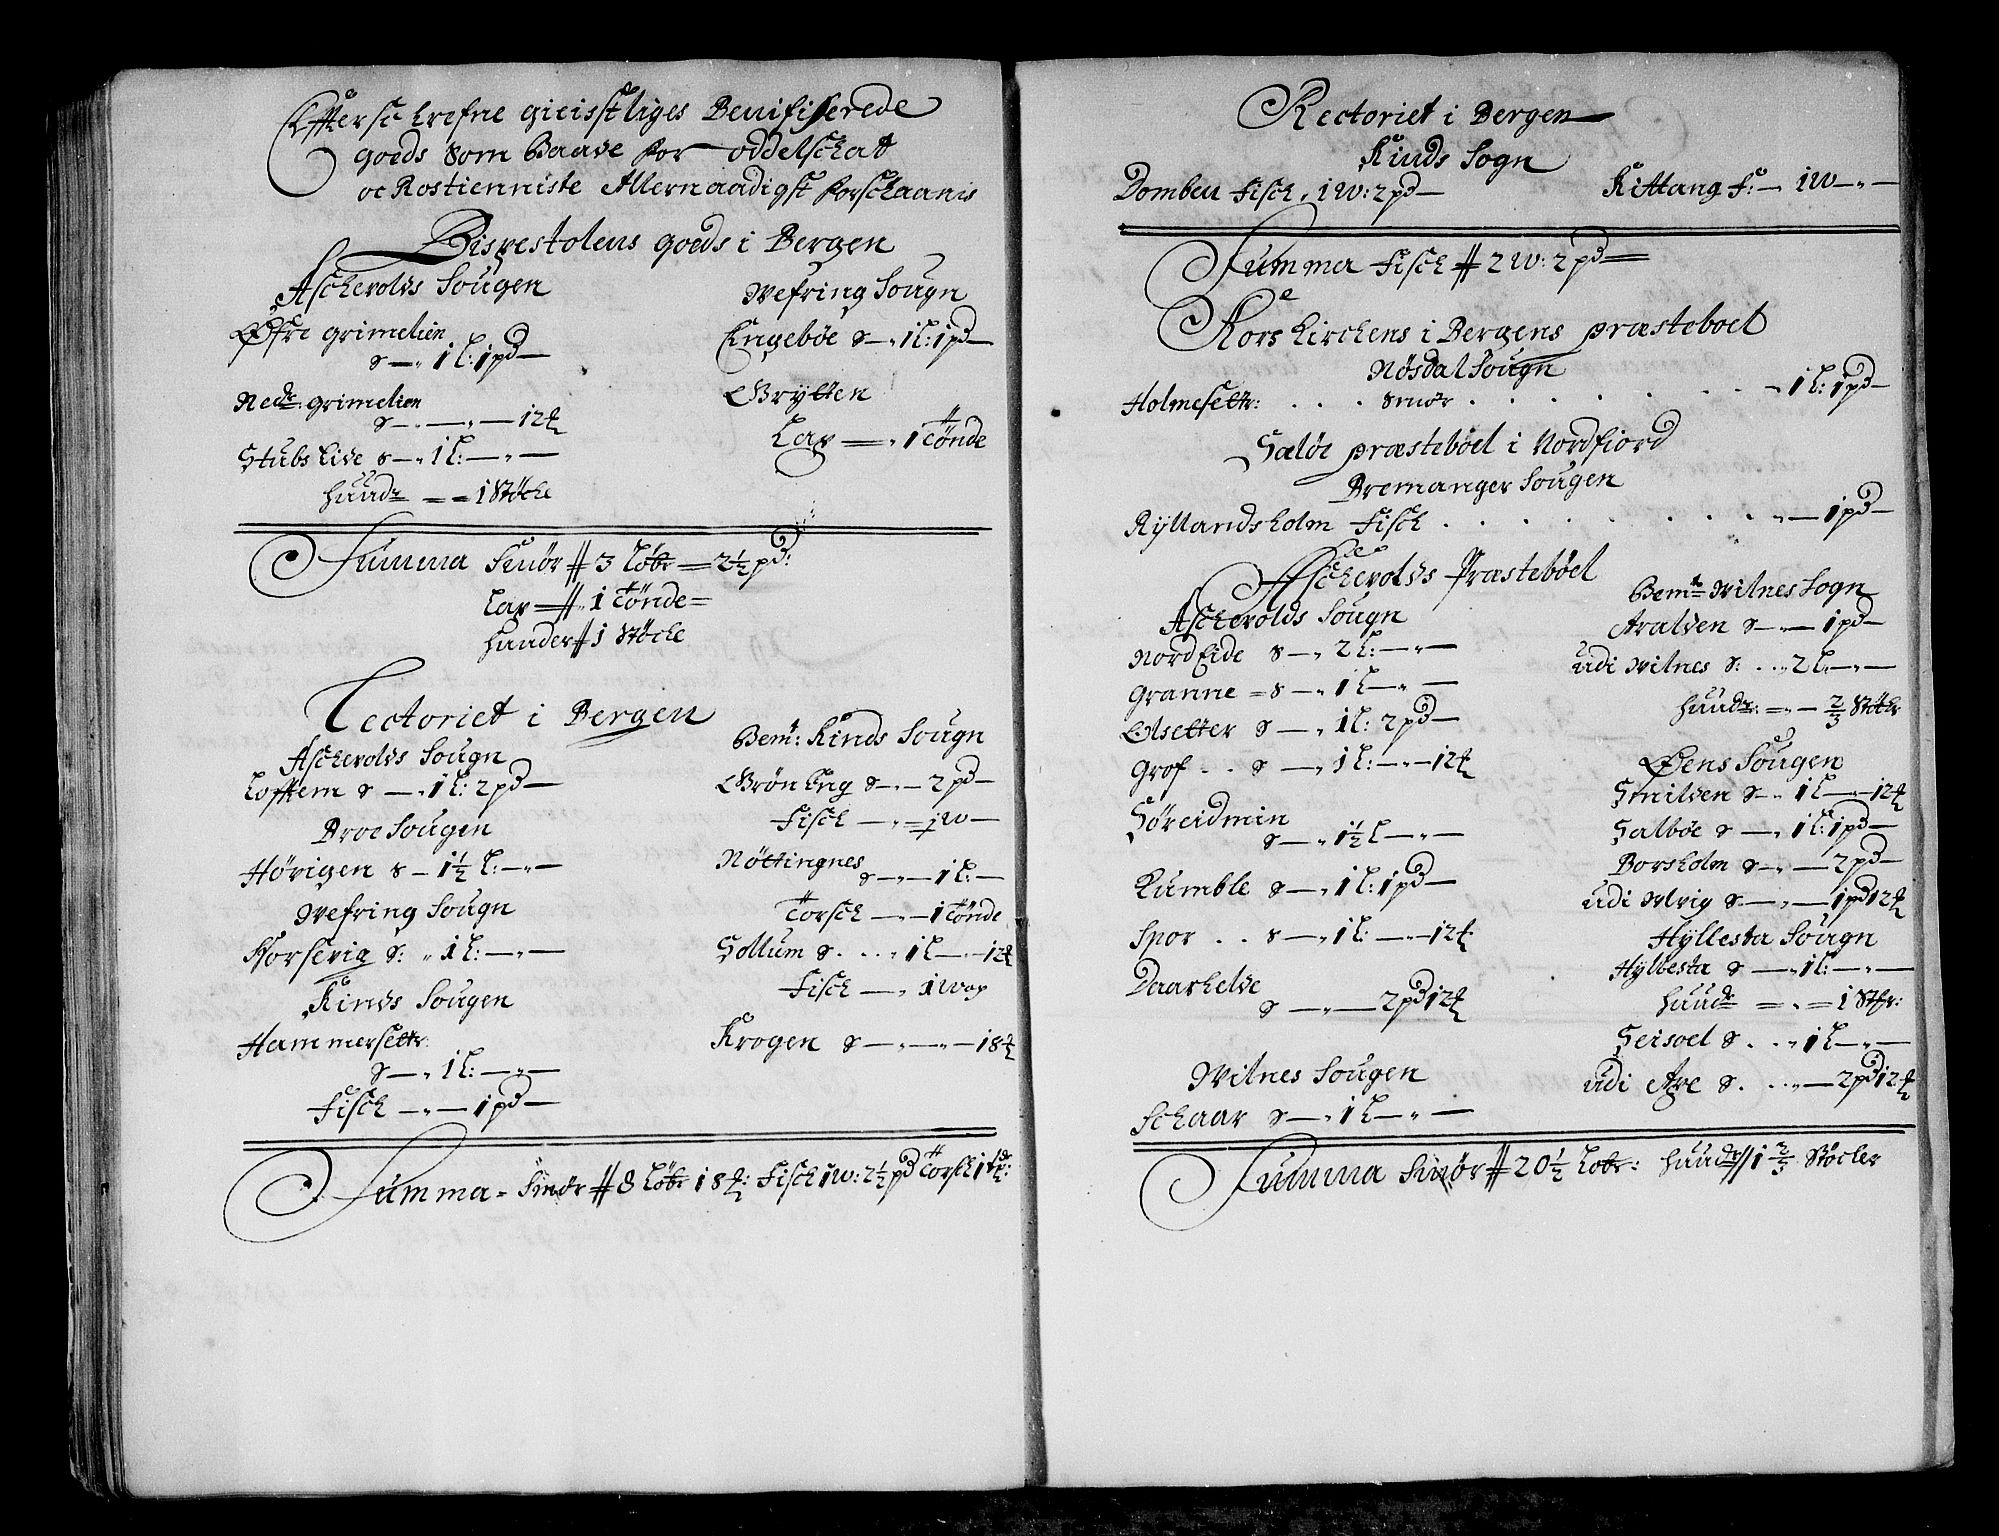 Effterschrefne gieistliges Benifiserede
goeds som Baade for oddelschat
oc Rostienniste Allernaadigst forschaanis
Bispestolens goeds i Bergen
Aschevolds Sougen
Øfre grimelien
s — „ 1 l: 1 pd —
Nedr: grimelien
s — „ — „ — 12 ₶
Stubslide s — „ 1 l: — „ —
huudr = = 1 Støche
Wefring Sougn
Engebøe s — „ 1 l: 1 pd —
Grytten
Lax — „ 1 Tønde
Summa Smør // 3 Løbr = 2½ pd:
Lax — // „ 1 Tønde =
huuder // 1 Støche
Lectoriet i Bergen
Aschevolds Sougn
Lofftem s — „ 1 l: 2 pd —
Broe Sougen
Hørigen s — 1½ l: — „ —
Wefring Sougn
Horsevig s: „ 1 l: — „ —
Kinds Sougen
Hammersettr:
s — „ 1 l: — „ —
Fisch — „ — 1 pd —
Bemt: Kinds Sougn
Grønèng s — „ — 2 pd —
Fisch — „ = 1 W —
Nøttingnes
s — „ — 1 l: —
Torsch — „ — 1 Tønde
Sollum s . . . „ 1 l — „ — 12 ₶
Fisch — „ 1 Wog
Krogen s — „ — „ — 18 ₶
Summa - Smør // 8 Løbr 18 ₶: Fisch 1 W: 2½ pd Torsch 1 td:
Rectoriet i Bergen
Kinds Sogn
Domben Fisch . 1 W: 2 pd —
Kittang F: — „ 1 W — „ —
Summa Fisch // 2 W: 2 pd =
Kors Kirchens i Bergens præsteboel
Nøsdal Sougn
Holmesettr: . . . smør . . . . . . . „ 1 l: 1 pd —
Sæløe præstebøel i Nordfiord
Bremanger Sougen
Ryllandsholm Fisch . . . . . . . . „ — 1 pd —
Aschevolds Præstebøel
Aschevolds Sougn
Nord Eide s — „ 2 l: — „ —
Granne = s — „ 1 l — „ —
Olsetter s — „ 1 l: 2 pd —
Grof . . s — „ 1 l: — „ — 12 ₶
Søreidmin
s — „ 1½ l — „ —
Kumble s — „ 1 l: 1 pd —
Spor . . s — „ 1 l: — „ — 12 ₶
Daarhelde
s — „ — 2 pd 12 ₶
Wilnes Sougen
Schaar s — „ 1 l — „ —
Bemte Wilnes Sogn
Araldен s — „ — 1 pd —
udi Wilnes s: . . „ 2 l — „ —
huudr: = „ — ⅔ Støchr
Øens Sougen
Smilden s — „ 1 l — „ — 12 ₶
Salbøe s — „ 1 l: 1 pd —
Borsholm s — „ — 2 pd —
udi Ulvig s — „ — 1 pd 12 ₶
Hyllesta Sougn
Hyllesta s — „ 1 l: — „ —
huudr = „ = 1 Støhr:
Seisoel s . . „ 1 l — „ —
udi Are s . . . „ — 2 pd 12 ₶
Summa Smør // 20½ Løbr: huudr // 1 ⅔ Støcher